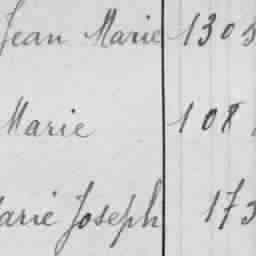 Jean Marie 130
Marie 108
Joseph 17